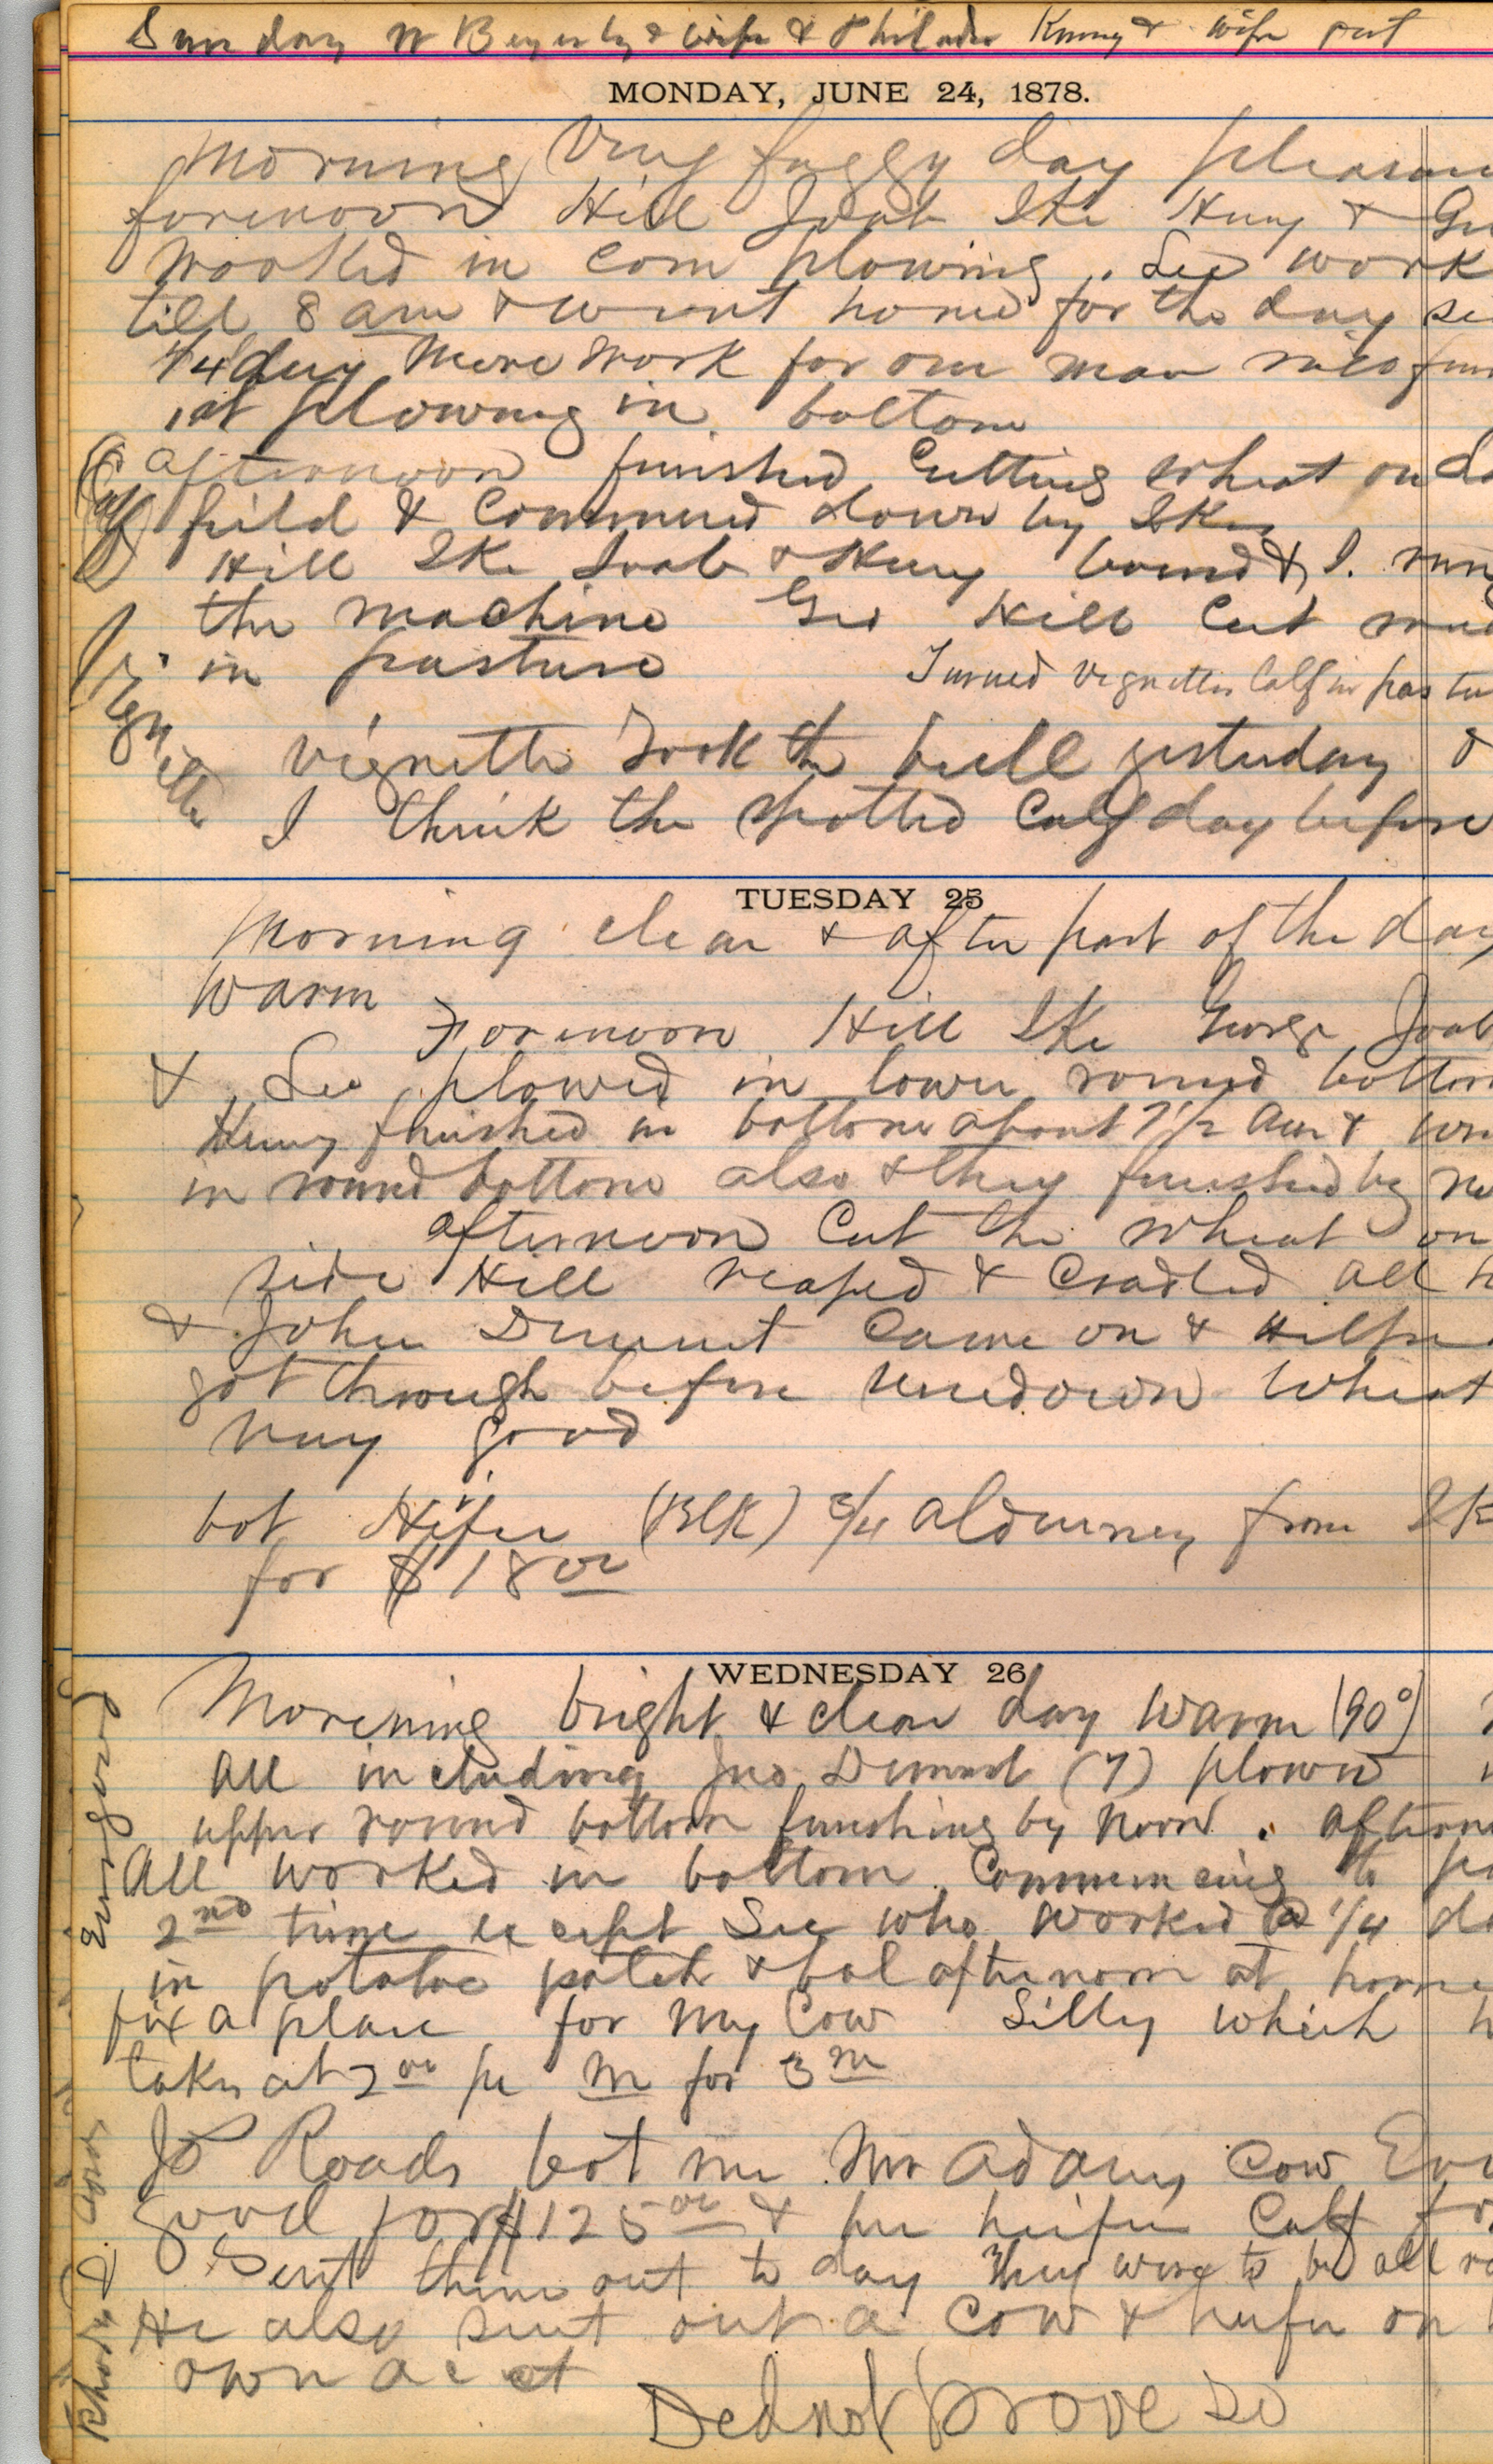 Sunday W Beyerly & wife & Philader Kinney & wife
MONDAY, JUNE 24, 1878.
Morning Very foggy day pleasan
forenoon Hill Joab Ike Henry & Ge
worked in corn plowing. Lee work
till 8 am & went home for the day
1/4 day more work for one man
1st plowing in bottom
afternoon finished Cutting wheat on
field & Commenced down by Ikes
Calf
Hill Ike Joab & Henry bound & I. run
the machine Geo Hill Cut
in pasture
Turned Vignettes Calf in pastu
Vignette
Vignette Took the bull yesterday &
I think the spotted Calf day before
TUESDAY 25
Morning clear & after part of the day
Warm
Forenoon Hill Ike George Joab
& Lee plowed in lower round bottom
Henry finished in bottom about 7 1/2 am &
in round bottom also & they finished by
afternoon Cut the wheat on
side Hill reaped & Cradled all
& John Dimmit Came on &
got through before sundown Wheat
very good
bot Heifer (Blk) 3/4 alderney from Ik
for $18 00
WEDNESDAY 26
Morening bright & clear day warm (90°)
All including Jno Dimmit (7) plown
upper round bottom finishing by noon. aftern
All worked in bottom Commencing to
2nd time except Lee who worked 1/4 d
in potatoe patch & bal afternoon at home
fix a place for My Cow Silly which h
takes at 2 00 per M for 3 m
Evergood
Jo Roads bot me Mr Adams Cow Eve
good for $125 00 & her heifer Calf
Sent them out to day They were to be all
He also sent out a Cow & heifer on
own acct
Did not prove so
Rhoda D.